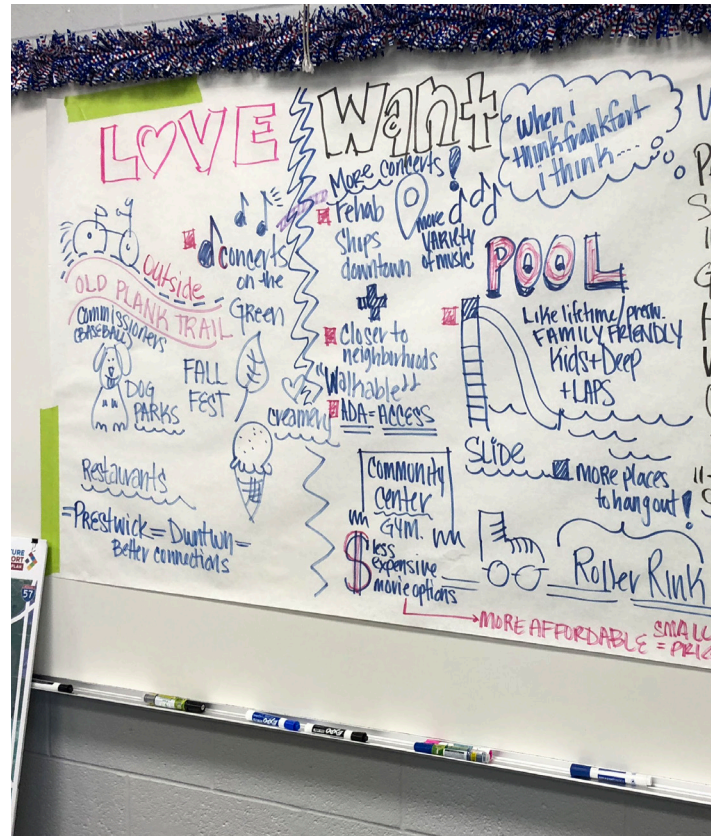 LOVE
Outside
OLD PLANK TRAIL
Commissioners
(BASEBALL)
concerts
on the
Green
DOG
PARKS
FALL
FEST
creamery
Restaurants
=Prestwick=Dwntwn=
Better connections
Want
More concerts!
Rehab
Shops
downtown
more
VARIETY
of music
+
Closer to
neighborhoods
"Walkable"
ADA = ACCESS
Community
Center
GYM.
$ less
expensive
movie options
MORE AFFORDABLE = 
When i
think frankfort
i think....
POOL
Like lifetime/prestw.
FAMILY FRIENDLY
Kids+Deep
+LAPS
SLIDE
MORE places
to hang out!
Roller Rink
57